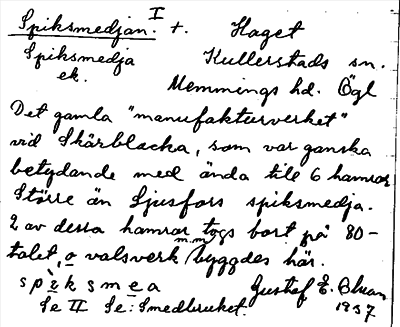 Spiksmedjan. I t. Haget
Spiksmedja Kullerstads sn.
ek. Memmings hd. Ögl
Det gamla "manufakturverket"
vid Skärblacka, som var ganska
betydande med ända till 6 hamrar
Större än Ljusfors spiksmedja.
2 av dessa hamrar togs bort på 80-
talet, o valsverk m.m. byggdes här.
spiksmea Gustaf E.
Se II Se: Smedbruket. 1937